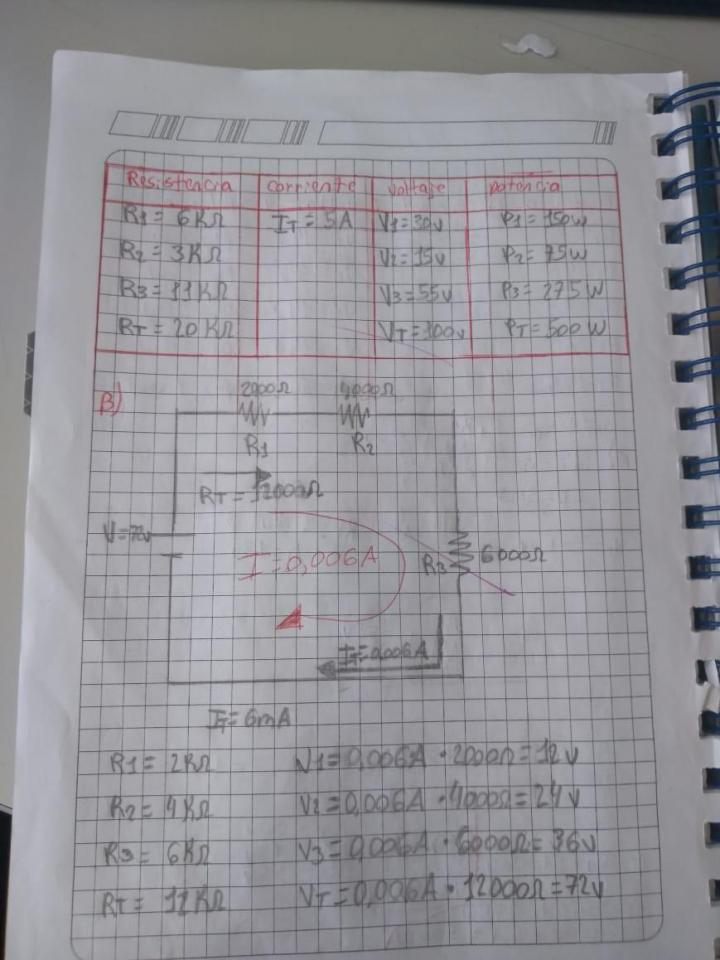 Resistencia corriente voltaje potencia
R1 = 6KΩ IT = 5A V1=30v P1 = 150w
R2 = 3KΩ V2 = 15v P2 = 75w
R3 = 11KΩ V3=55v P3 = 275W
RT = 20KΩ VT=100v PT=500W
B)
2000Ω 4000Ω
R1 R2
RT = 12000Ω
V=72v
I=0,006A
R3 6000Ω
IT=0,006A
IT= 6mA
R1 = 2KΩ V1=0,006A · 2000Ω = 12v
R2 = 4KΩ V2=0,006A · 4000Ω = 24v
R3 = 6KΩ V3=0,006A · 6000Ω = 36v
RT = 12KΩ VT=0,006A · 12000Ω = 72v